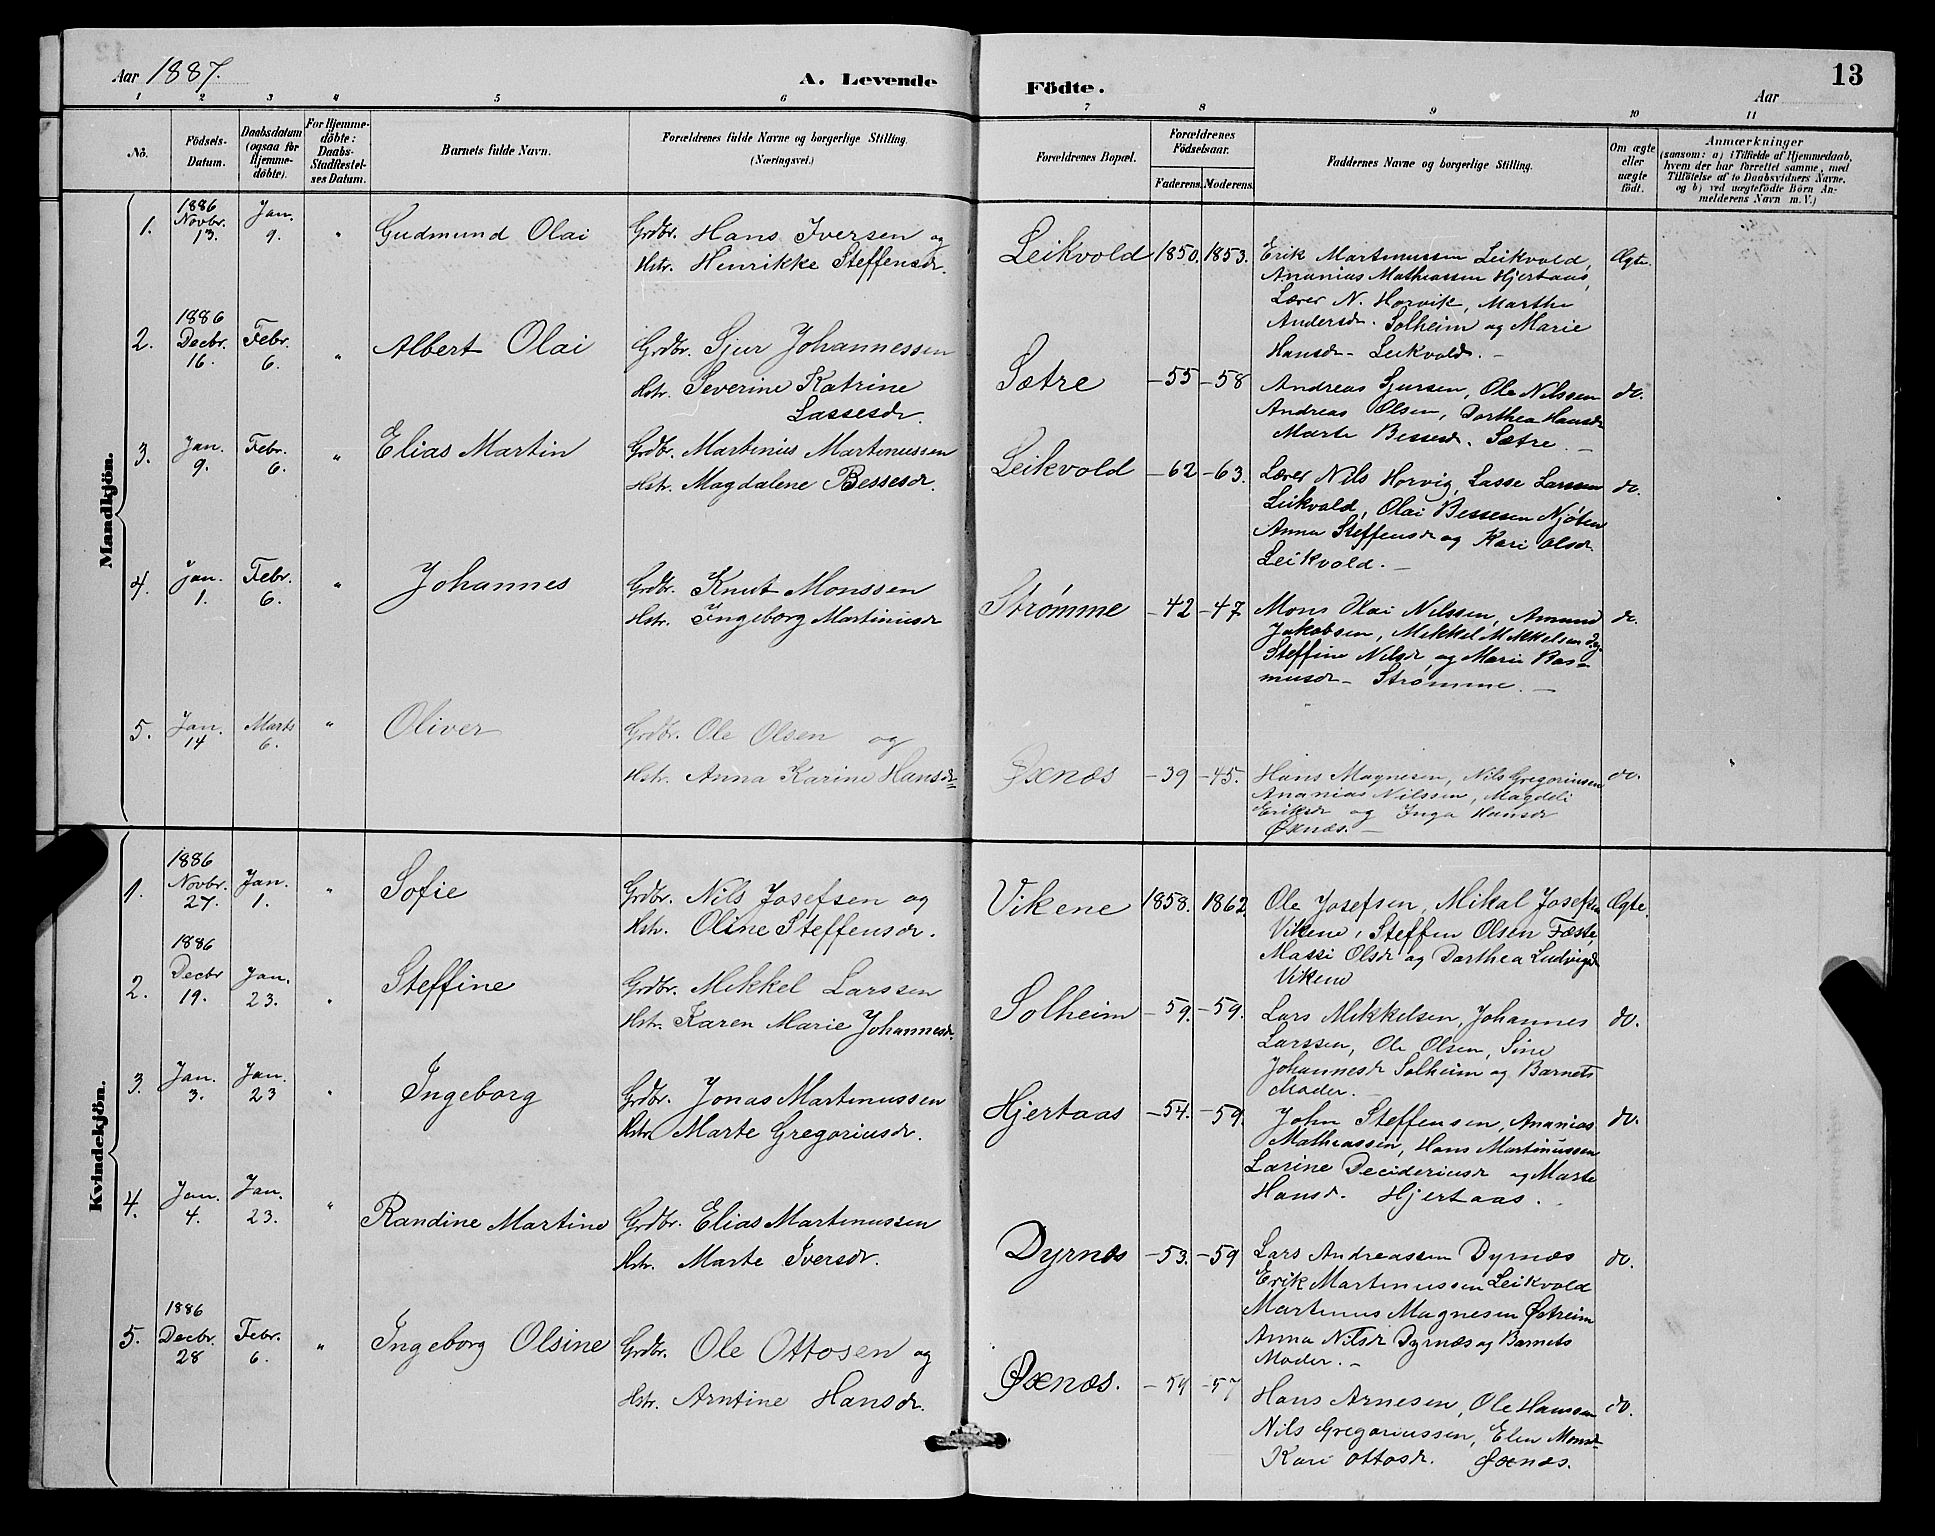 Aar 1887.
A. Levende Födte.
13
Aar
1 2 3 4 5 6 7 8 9 10 11
No.
Födsels-Datum.
Daabsdatum (ogsaa for Hjemme-döbte).
For Hjemme-döbte: Daabs-Stadfæstel-ses Datum.
Barnets fulde Navn.
Forældrenes fulde Navne og borgerlige Stilling.
(Næringsvei.)
Forældrenes Bopæl.
Forældrenes Födselsaar.
Faderens. Moderens.
Faddernes Navne og borgerlige Stilling.
Om ægte eller uægte födt.
Anmærkninger
(saasom: a) i Tilfælde af Hjemmedaab,
hvem der har forrettet samme, med
Tilföielse af to Daabsvidners Navne,
og b) ved uægtefödte Börn An-
melderens Navn m. V.)
Mandkjön.
1. 1886 Novbr. 13. Jan. 9. " Gudmund Olai
Grdbr. Hans Iversen og
Hstr. Henrikke Steffensdr.
Leikvold 1850. 1853.
Erik Martinussen Leikvold,
Ananias Mathiassen Hjertaas,
Lærer N. Horvik, Marthe
Andersdr. Solheim og Marie
Hansdr. Leikvold. –
Ægte.
2. 1886 Decbr. 16. Febr. 6. " Albert Olai
Grdbr. Sjur Johannessen
Hstr. Severine Katrine
Lassesdr.
Sætre –55 –58
Andreas Sjursen, Ole Nilssen
Andreas Olsen, Dorthea Hansdr
Marte Bessesdr. Sætre. –
do.
3. Jan. 9. Febr. 6. " Elias Martin
Grdbr. Martinus Martinussen
Hstr. Magdalene Bessesdr.
Leikvold –62 –63.
Lærer Nils Horvig, Lasse Larssen
Leikvold, Olai Bessesen Njöten
Anna Steffensdr og Kari Olsdr.
Leikvold. –
do.
4. Jan. 1. Febr. 6. " Johannes
Grdbr. Knut Monssen
Hstr. Ingeborg Martinusdr
Strømme –42 –47
Mons Olai Nilssen, Amund
Jakobsen, Mikkel Mikkelsen
Steffine Nilsdr og Marie Ras-
musdr – Strømme. –
do.
5. Jan. 14 Marts 6. " Oliver
Grdbr. Ole Olsen og
Hstr. Anna Karine Hansdr
Øxnæs –39 –45.
Hans Magnesen, Nils Gregoriussen
Ananias Nilssen, Magdeli
Eriksdr og Inga Hansdr
Øxnæs. –
do.
Kvindekjön.
1. 1886 Novbr. 27. Jan. 1. " Sofie
Grdbr. Nils Josefsen og
Hstr. Oline Steffensdr.
Vikene 1858. 1862.
Ole Josefsen, Mikal Josefsen
Vikene, Steffen Olsen Fæste,
Massi Olsdr og Dorthea Ludvigsdr
Vikene
Ægte.
2. 1886 Decbr 19. Jan. 23. " Steffine
Grdbr. Mikkel Larssen
Hstr. Karen Marie Johannesdr.
Solheim –59. –59.
Lars Mikkelsen, Johannes
Larssen, Ole Olsen, Sine
Johannesdr Solheim og Barnets
Moder. –
do.
3. Jan. 3. Jan. 23 " Ingeborg
Grdbr. Jonas Martinussen
Hstr. Marte Gregoriusdr.
Hjertaas –54. –59.
John Steffensen, Ananias
Mathiassen, Hans Martinussen
Larine Decideriusdr og Marte
Hansdr. Hjertaas.
do.
4. Jan. 4. Jan. 23. " Randine Martine
Grdbr. Elias Martinussen
Hstr. Marte Iversdr.
Dyrnæs –53. –59
Lars Andreassen Dyrnæs
Erik Martinussen Leikvold
Martinus Magnesen Østreim
Anna Nilsdr Dyrnæs og Barnets
Moder. –
do.
5. 1886 Decbr. 28 Febr. 6. " Ingeborg Olsine
Grdbr. Ole Ottosen og
Hstr. Arntine Hansdr.
Øxnæs. –59 –57
Hans Arnesen, Ole Hanssen
Nils Gregoriussen, Elen Monsdr
Kari Ottosdr. Øxnæs.
do.